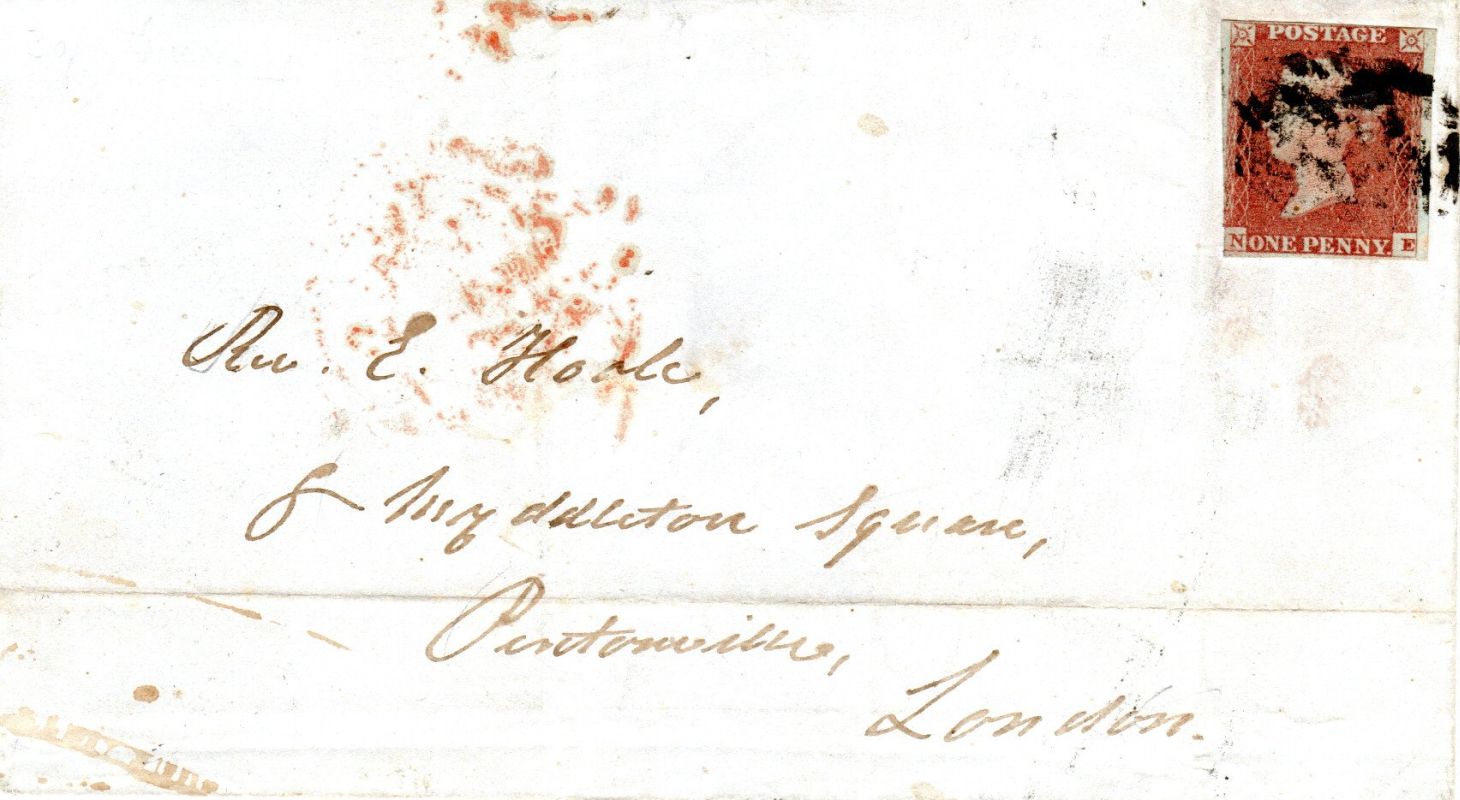 POSTAGE
N ONE PENNY. E
Rev. E. Hoole,
8 Myddleton Square,
Pentonville,
London.